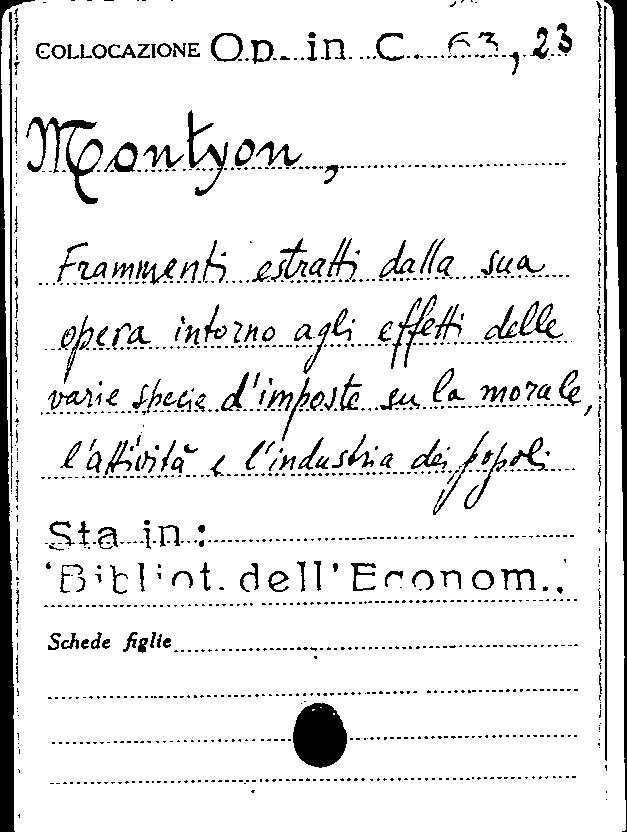 COLLOCAZIONE Op. in C. 63, 23
Montyon,
Frammenti estratti dalla sua
opera intorno agli effetti delle
varie specie d'imposte su la morale,
l'attività e l'industria dei popoli
Sta in:
'Bibliot. dell'Econom.,'
Schede figlie